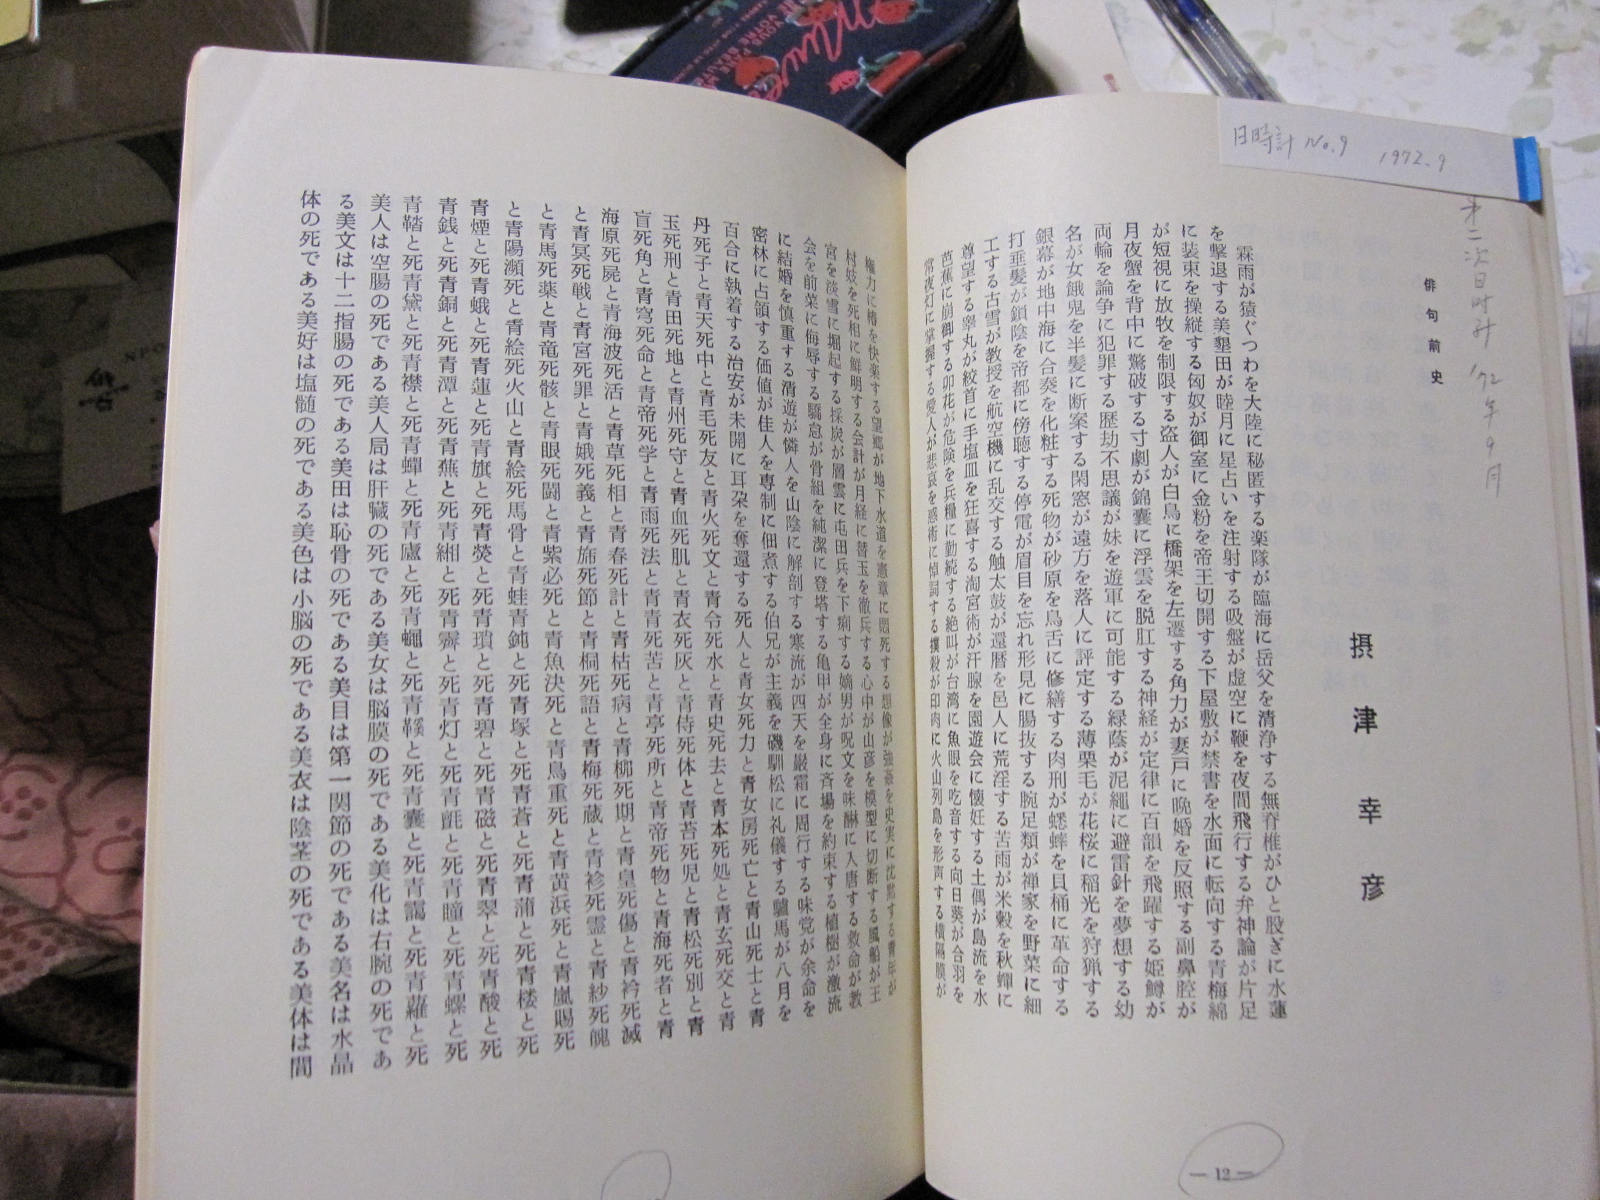 日時計 No.9 1972.9
第二次日時計 '72年9月
俳句前史
摂津幸彦
霖雨が猿ぐつわを大陸に秘匿する楽隊が臨海に岳父を清浄する無脊椎がひと股ぎに水蓮
を撃退する美墾田が睦月に星占いを注射する吸盤が虚空に鞭を夜間飛行する弁神論が片足
に装束を操縦する匈奴が御室に金粉を帝王切開する下屋敷が禁書を水面に転向する青梅綿
が短視に放牧を制限する盗人が白鳥に橋架を左遷する角力が妻戸に晩婚を反照する副鼻腔が
月夜蟹を背中に驚破する寸劇が錦嚢に浮雲を脱肛する神経が定律に百韻を飛躍する姫鱒が
両輪を論争に犯罪する歴劫不思議が妹を遊軍に可能する緑蔭が泥縄に避雷針を夢想する幼
名が女餓鬼を半髪に断案する閑窓が遠方を落人に評定する薄栗毛が花桜に稲光を狩猟する
銀幕が地中海に合奏を化粧する死物が砂原を鳥舌に修繕する肉刑が蟋蟀を貝桶に革命する
打垂髪が鎖陰を帝都に傍聴する停電が眉目を忘れ形見に腸抜する腕足類が禅家を野菜に細
工する古雪が教授を航空機に乱交する触太鼓が還暦を邑人に荒淫する苦雨が米穀を秋蟬に
尊望する睾丸が絞首に手塩皿を狂喜する淘宮術が汗腺を園遊会に懐妊する土偶が島流を水
芭蕉に崩御する卯花が危険を兵糧に勤続する絶叫が台湾に魚眼を吃音する向日葵が合羽を
常夜灯に掌握する愛人が悲哀を惑術に悼詞する撲殺が印肉に火山列島を形声する横隔膜が
権力に椿を快楽する望郷が地下水道を憲章に悶死する想像が強姦を史実に沈黙する青年が
村妓を死相に鮮明する会計が月経に替玉を徹兵する心中が山彦を模型に切断する風船が王
宮を淡雪に堀起する採炭が層雲に屯田兵を下痢する嫡男が呪文を味醂に入唐する救命が教
会を前菜に侮辱する驕怠が骨組を純潔に登塔する亀甲が全身に斉場を約束する植樹が激流
に結婚を慎重する清遊が憐人を山陰に解剖する寒流が四天を厳霜に周行する味党が余命を
密林に占領する価値が佳人を専制に佃煮する伯兄が主義を磯馴松に礼儀する驢馬が八月を
百合に執着する治安が未開に耳朶を奪還する死人と青女死力と青女房死亡と青山死士と青
丹死子と青天死中と青毛死友と青火死文と青令死水と青史死去と青本死処と青玄死交と青
玉死刑と青田死地と青州死守と青血死肌と青衣死灰と青侍死体と青苔死児と青松死別と青
盲死角と青穹死命と青帝死学と青雨死法と青青死苦と青亭死所と青帝死物と青海死者と青
海原死屍と青海波死活と青草死相と青春死計と青枯死病と青柳死期と青皇死傷と青衿死滅
と青冥死戦と青宮死罪と青娥死義と青旆死節と青桐死語と青梅死蔵と青衫死霊と青紗死魄
と青馬死薬と青竜死骸と青眼死闘と青紫必死と青魚決死と青鳥重死と青黄浜死と青嵐賜死
と青陽瀕死と青絵死火山と青絵死馬骨と青蛙青鈍と死青塚と死青蒼と死青蒲と死青楼と死
青煙と死青蛾と死青蓮と死青旗と死青熒と死青瑣と死青碧と死青磁と死青翠と死青酸と死
青銭と死青銅と死青潭と死青蕪と死青緗と死青霽と死青灯と死青氈と死青瞳と死青螺と死
青鞜と死青黛と死青襟と死青蟬と死青廬と死青蠅と死青鞿と死青嚢と死青靄と死青蘿と死
美人は空腸の死である美人局は肝臓の死である美女は脳膜の死である美化は右腕の死であ
る美文は十二指腸の死である美田は恥骨の死である美目は第一関節の死である美名は水晶
体の死である美好は塩髄の死である美色は小脳の死である美衣は陰茎の死である美体は間
— 12 —